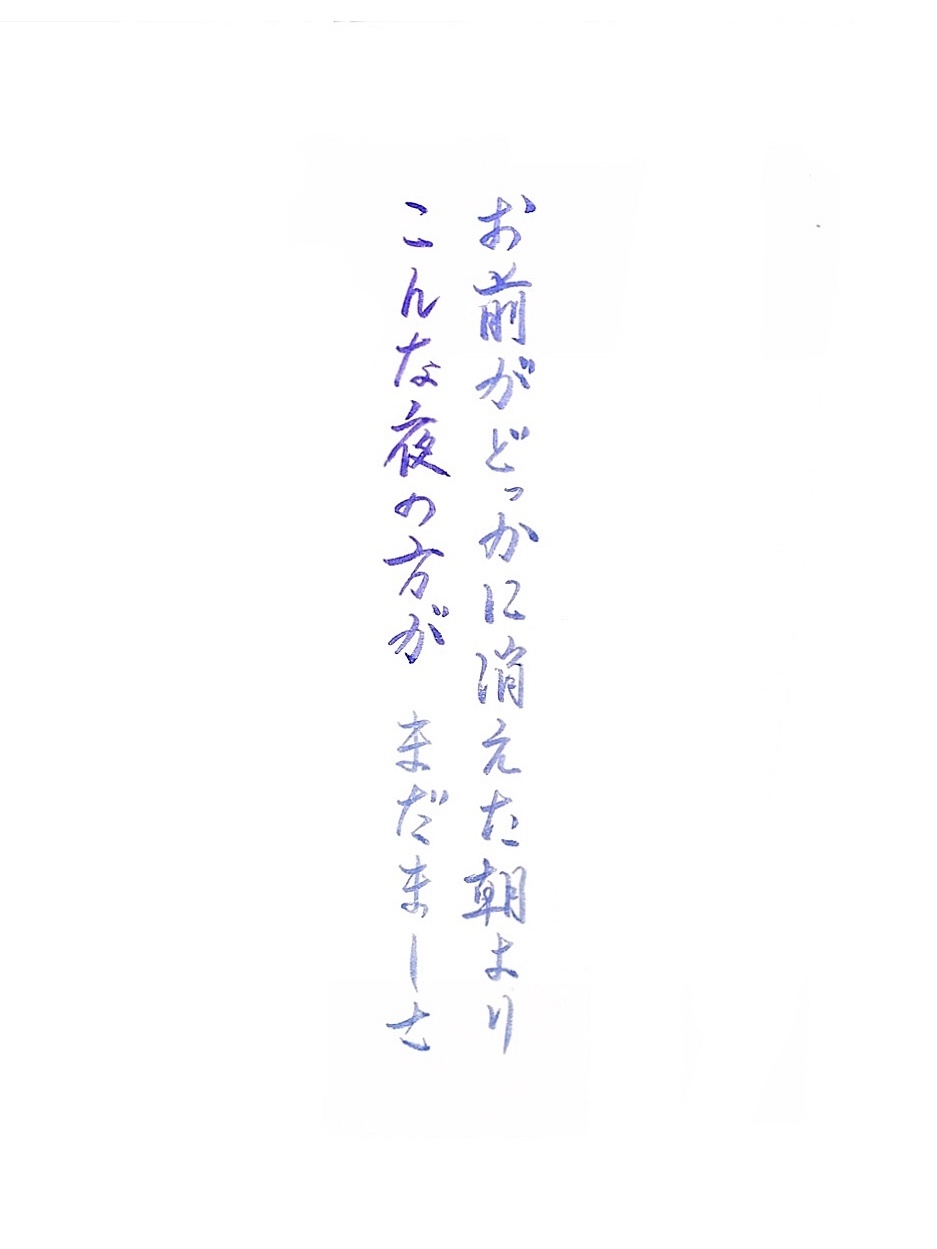 お前がどっかに消えた朝より
こんな夜の方が　まだましさ